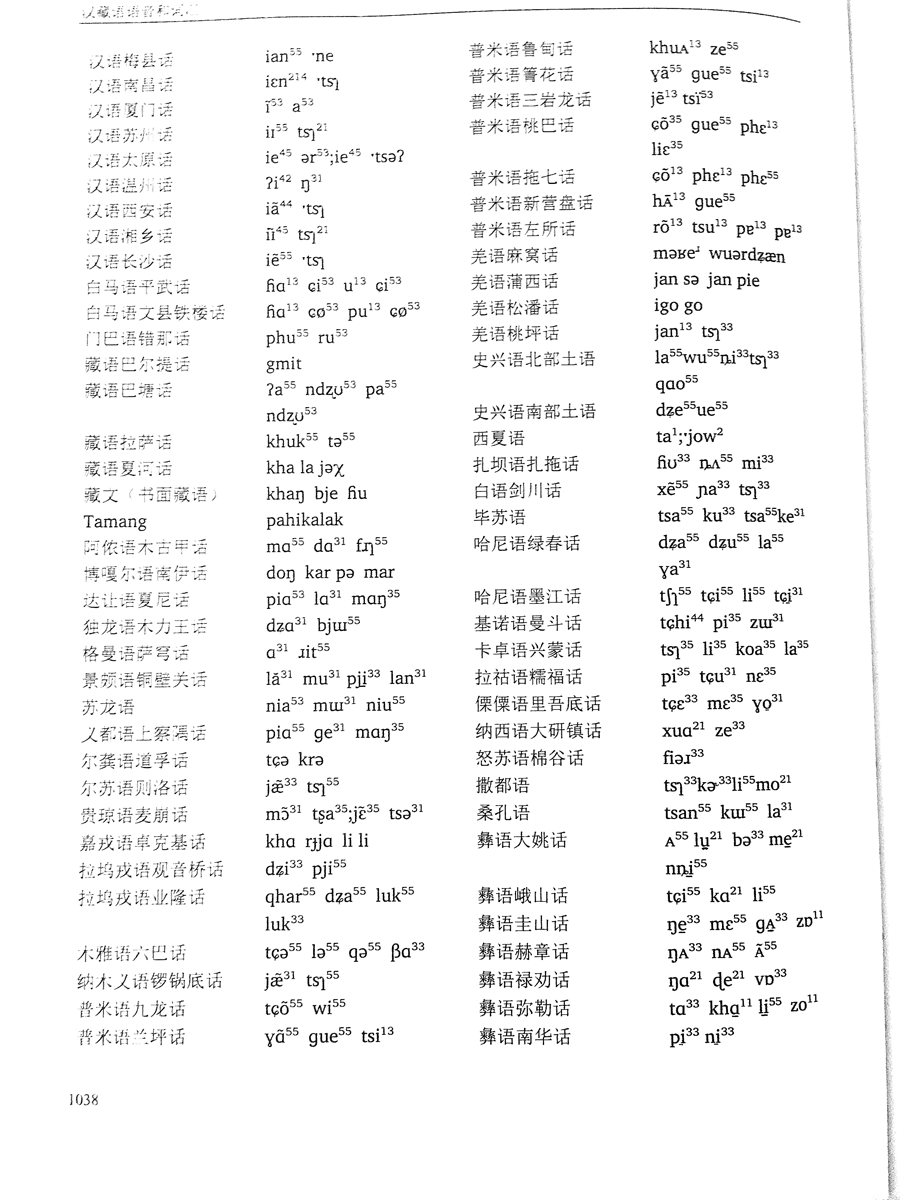 汉藏语语音和词汇
汉语梅县话 ian⁵⁵ ·ne
汉语南昌话 iɛn²¹⁴ ·tsɿ
汉语厦门话 ĩ⁵³ a⁵³
汉语苏州话 iɪ⁵⁵ tsɿ²¹
汉语太原话 ie⁴⁵ ər⁵³;ie⁴⁵ ·tsəʔ
汉语温州话 ʔi⁴² ŋ³¹
汉语西安话 iã⁴⁴ ·tsɿ
汉语湘乡话 iĩ⁴⁵ tsɿ²¹
汉语长沙话 iẽ⁵⁵ ·tsɿ
白马语平武话 ɦɑ¹³ ɕi⁵³ u¹³ ɕi⁵³
白马语文县铁楼话 ɦɑ¹³ ɕø⁵³ pu¹³ ɕø⁵³
门巴语错那话 phu⁵⁵ ru⁵³
藏语巴尔提话 gmit
藏语巴塘话 ʔa⁵⁵ ndzʋ̩⁵³ pa⁵⁵
ndzʋ̩⁵³
藏语拉萨话 khuk⁵⁵ tə⁵⁵
藏语夏河话 kha la jəχ
藏文（书面藏语） khaŋ bje ɦiu
Tamang pahikalak
阿侬语木古甲话 mɑ⁵⁵ dɑ³¹ fɹɿ⁵⁵
博嘎尔语南伊话 doŋ kar pə mar
达让语夏尼话 piɑ⁵³ lɑ³¹ mɑŋ³⁵
独龙语木力王话 dʑɑ³¹ bjɯ⁵⁵
格曼语萨穹话 ɑ³¹ ɹit⁵⁵
景颇语铜壁关话 lă³¹ mu³¹ pji̠³³ lan³¹
苏龙语 nia⁵³ mɯ³¹ niu⁵⁵
义都语上察隅话 piɑ⁵⁵ ge³¹ mɑŋ³⁵
尔龚语道孚话 tɕə krə
尔苏语则洛话 jæ̃³³ tsɿ⁵⁵
贵琼语麦崩话 mɔ̃³¹ tʂa³⁵;jɛ̃³⁵ tsə³¹
嘉戎语卓克基话 khɑ rɟjɑ li li
拉坞戎语观音桥话 dʑi³³ pji⁵⁵
拉坞戎语业隆话 qhar⁵⁵ dʑa⁵⁵ luk⁵⁵
luk³³
木雅语六巴话 tɕə⁵⁵ lə⁵⁵ qə⁵⁵ βɑ³³
纳木义语锣锅底话 jæ̃³¹ tsɿ⁵⁵
普米语九龙话 tɕõ⁵⁵ wi⁵⁵
普米语兰坪话 ɣɑ̃⁵⁵ gue⁵⁵ tsi¹³
普米语鲁甸话 khuᴀ¹³ ze⁵⁵
普米语箐花话 ɣã⁵⁵ gue⁵⁵ tsi¹³
普米语三岩龙话 jẽ¹³ tsi⁵³
普米语桃巴话 ɕõ³⁵ gue⁵⁵ phɛ¹³
liɛ³⁵
普米语拖七话 ɕõ¹³ phɛ¹³ phɛ⁵⁵
普米语新营盘话 hᴀ̃¹³ gue⁵⁵
普米语左所话 rõ¹³ tsu¹³ pɐ¹³ pɐ¹³
羌语麻窝话 məʁeʴ wuərdʑæn
羌语蒲西话 jan sə jan pie
羌语松潘话 igo go
羌语桃坪话 jan¹³ tsɿ³³
史兴语北部土语 la⁵⁵wu⁵⁵ȵi³³tsɿ³³
qɑo⁵⁵
史兴语南部土语 dʑe⁵⁵ue⁵⁵
西夏语 ta¹;·jow²
扎坝语扎拖话 ɦʊ³³ ȵʌ⁵⁵ mi³³
白语剑川话 xẽ⁵⁵ ɲa³³ tsɿ³³
毕苏语 tsa⁵⁵ ku³³ tsa⁵⁵ke³¹
哈尼语绿春话 dʑa⁵⁵ dʑu⁵⁵ la⁵⁵
ɣa³¹
哈尼语墨江话 tʃɿ⁵⁵ tɕi⁵⁵ li⁵⁵ tɕi̠³¹
基诺语曼斗话 tɕhi⁴⁴ pi³⁵ zɯ³¹
卡卓语兴蒙话 tsɿ³⁵ li³⁵ koa³⁵ la³⁵
拉祜语糯福话 pi³⁵ tɕu³¹ nɛ³⁵
傈僳语里吾底话 tɕɛ³³ mɛ³⁵ ɣo̠³¹
纳西语大研镇话 xuɑ²¹ ze³³
怒苏语棉谷话 fiəɹ³³
撒都语 tsɿ³³kɚ³³li⁵⁵mo²¹
桑孔语 tsan⁵⁵ kɯ⁵⁵ la³¹
彝语大姚话 ᴀ⁵⁵ lu̠²¹ bə³³ me̠²¹
nȵi̠⁵⁵
彝语峨山话 tɕi⁵⁵ kɑ²¹ li⁵⁵
彝语圭山话 ŋe̠³³ mɛ⁵⁵ gᴀ̠³³ zɒ¹¹
彝语赫章话 ŋᴀ³³ nᴀ⁵⁵ ᴀ̃⁵⁵
彝语禄劝话 ŋɑ²¹ ɖe²¹ vɒ³³
彝语弥勒话 tɑ³³ khɑ̠¹¹ li̠⁵⁵ zo¹¹
彝语南华话 pi̠³³ ni̠³³
1038